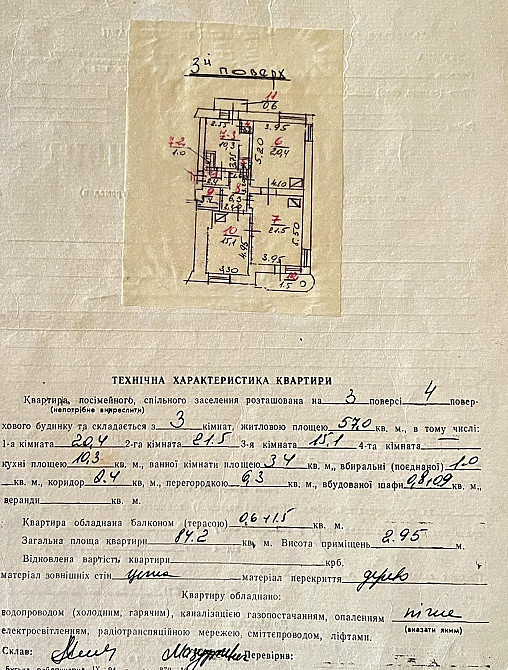 3й поверх
11
0,6
2.55
3.95
7-3
10,3
6
20,4
5.20
7-2
1.0
3.75
2.4
4.10
6,3
3.4
10
15,1
7
21.5
5.50
4.95
3.95
3.30
1.5
ТЕХНІЧНА ХАРАКТЕРИСТИКА КВАРТИРИ
Квартира, посімейного, спільного заселення розташована на 3 поверсі 4 повер-
(непотрібне викреслити)
хового будинку та складається з 3 кімнат, житловою площею 57.0 кв. м., в тому числі:
1-а кімната 20,4 2-га кімната 21.5 3-я кімната 15,1 4-та кімната —
кухні площею 10,3 кв. м., ванної кімнати площею 3.4 кв. м., вбиральні (поєднаної) 1.0
кв. м., коридор 2.4 кв, м., перегородкою 6,3 кв. м., вбудованої шафи 0,8+0,9 кв. м.,
веранди кв. м.
Квартира обладнана балконом (терасою) 0,6+1.5 кв. м.
Загальна площа квартири 84.2 кв, м. Висота приміщень 2.95 м.
Відновлена вартість квартири крб.
матеріал зовнішніх стін цегла матеріал перекриття дерево
Квартиру обладнано:
водопроводом (холодним, гарячим), каналізацією газопостачанням, опаленням пічне
електросвітленням, радіотрансляційною мережею, сміттєпроводом, ліфтами. (вказати яким)
Склав: Перевірив: